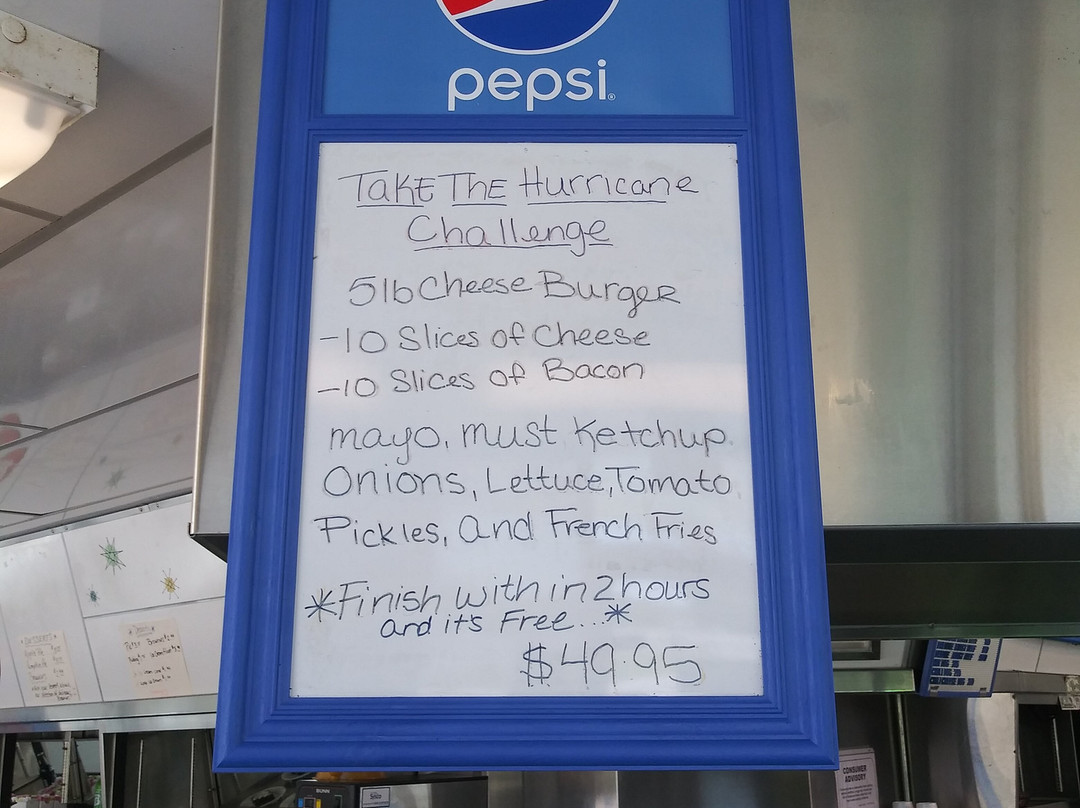 pepsi
Take The Hurricane
Challenge
5lb Cheese Burger
-10 Slices of Cheese
-10 Slices of Bacon
mayo, must Ketchup
Onions, Lettuce, Tomato
Pickles, and French Fries
*Finish within 2 hours
and it's Free...*
$49.95
CONSUMER
ADVISORY